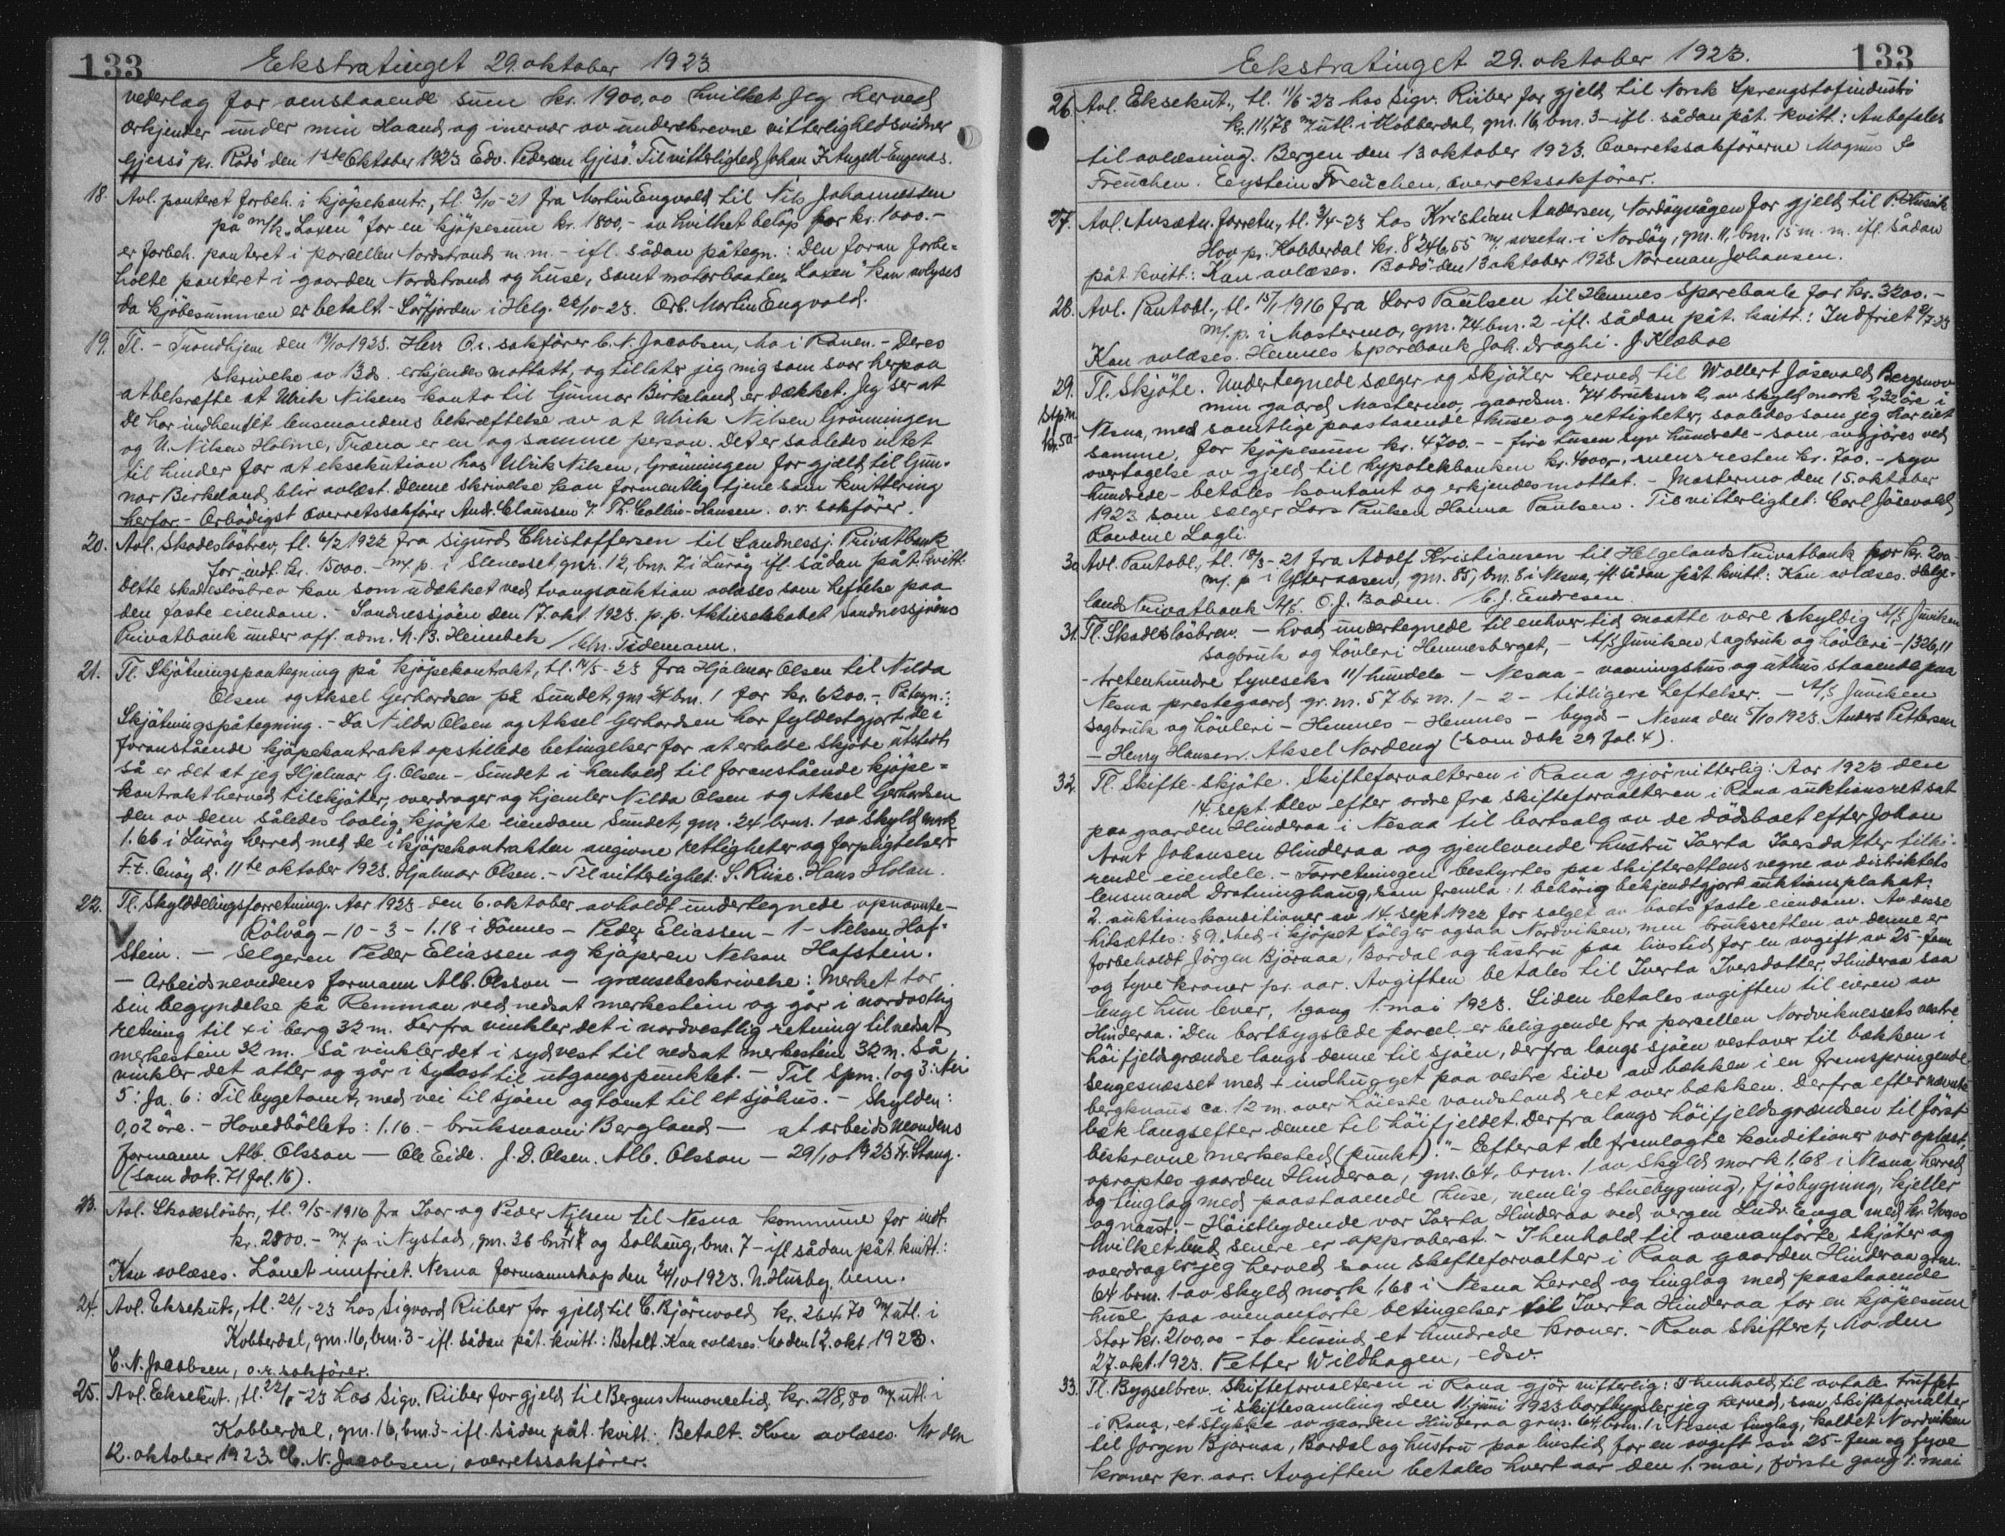 133
Ekstratinget 29. oktober 1923.
vederlag for oenstaaende sum kr. 1900,00 hvilket jeg herved
erkjender under min Haand og inervær av underskrevne vitterlighedsvidner
Gjessö pr. Rodö den 1ste Oktober 1923 Edv. Pedersen Gjesö. Til vitterlighed: Johan K. Angell-Eugenas.
18. Avl. panteret forbeh. i kjöpekontr., tl. 3/10-21 fra Martin Engvold til Nils Johannessen
på m/k „Laxen" for en kjöpesum kr. 1800,- av hvilket belöp for kr. 1000.-
er forbeh. panteret i parcellen Nordstrand m.m. - ifl. sådan påtegn.: Den foran forbe-
holte panteret i gaarden Nordstrand og huse, samt motorbaaten „Laxen" kan avlyses
da kjöbesummen er betalt. - Sörfjorden i Helg. 22/10-23. Erb. Martin Engvold.
19. Tl. - Trondhjem den 19/10 1923. Herr O.r. sakförer C. N. Jacobsen, Mo i Ranen. - Deres
skrivelse av Bds. erkjendes mottatt, og tillater jeg mig som svar herpaa
at bekræfte at Ulrik Nilsens konto til Gunnar Birkeland er dækket. Jeg ser at
De har indhentet lensmandens bekræftelse av at Ulrik Nilsen Grönningen
og U. Nilsen Holme, Træna er en og samme person. Det er saaledes intet
til hinder for at eksekution hos Ulrik Nilsen, Grönningen for gjæld til Gun-
nar Berkeland blir avlæst. Denne skrivelse kan formentlig tjene som kvittering
herfor. - Ærbödigst Overretssakförer Andr. Claussen v. Th. Collin-Hansen. o.r. sakförer.
20. Avl. Skadeslösbrev, tl. 6/2 1922 fra Sigurd Christoffersen til Sandnessj. Privatbank
for indt. kr. 15000. - m/ p. i Stenesset, gnr. 12, bnr. 7 i Luröy ifl. sådan påt. kvitt:
Dette skadeslösbrev kan som udækket ved tvangsauktion avlæses som heftelse paa
den faste eiendom. - Sandnessjöen den 17. okt. 1923. p.p. Aktieselskabet Sandnessjöens
Privatbank under off. adm. N. B. Heimbeck / Chr. Tidemann.
21. Tl. Skjötningspaategning på kjöpekontrakt, tl. 14/5-23 fra Hjalmar Olsen til Nilda
Olsen og Aksel Gerhardsen på Sundet, gnr. 24 bnr. 1 for kr. 6200. - Påtegn.:
Skjötningspåtegning. - Da Nilda Olsen og Aksel Gerhardsen har fyldestgjort de i
foranstående kjöpekontrakt opstillede betingelser for at erholde skjöte utstedt,
så er det at jeg Hjalmar G. Olsen - Sundet i henhold til foranstående kjöpe-
kontrakt herved tilskjöter, overdrager og hjemler Nilda Olsen og Aksel Gerhardsen
den av dem således lovlig kjöpte eiendom Sundet, gnr. 24 bnr. 1 av skyld mark
1.66 i Luröy herred med de i kjöpekontrakten angivne rettigheter og forpligtelser
F.t. Luröy d. 11te oktober 1923. Hjalmar Olsen. - Til vitterlighet: S. Riise. Hans Holan.
22. Tl. Skylddelingsforretning. Aar 1923 den 6. oktober avholdt undertegnede opnævnte -
Rölvåg - 10 - 3 - 1.18 i Dönnes - Peder Eliassen - 1 - Nelson Haf-
stein. - Selgeren Peder Eliassen og kjöperen Nelson Hafstein.
- Arbeidsnevndens formann Alb. Olsson - grænsebeskrivelse: Merket tar
sin begyndelse på Remman ved nedsat merkestein og går i nordostlig
retning til x i berg 32 m. Derfra vinkler det i nordvestlig retning til nedsat
merkestein 32 m. Så vinkler det i sydvest til nedsat merkestein 32 m. Så
vinkler det atter og går i sydost til utgangspunktet. - Til spm. 1 og 3: Nei
5: Ja. 6: Til bygetomt, med vei til sjöen og tomt til et sjöhus. - Skylden:
0,02 öre. - Hovedböllets: 1.16. - bruksnavn: Bergland - at arbeidsnevndens
formann Alb. Olsson - Ole Eide. J. D. Olsen. Alb. Olsson - 29/10 1923 Fr. Stang.
(som dok. 71 fol. 16).
23. Avl. Skadeslösbr., tl. 9/5-1916 fra Iver og Peder Nilsen til Nesna kommune for indt.
kr. 2800. - m/ p. i Nystad, gnr. 36 bnr. 4 og Solhaug, bnr. 7 - ifl. sådan påt. kvitt.:
Kan avlæses. Lånet innfriet. Nesna formannskap den 24/10 1923. N. Husby. bem.
24. Avl. Eksekut., tl. 22/1-23 hos Sigvard Riiber for gjeld til C. Björnvold kr. 264.70 m/ utl. i
Kobberdal, gnr. 16, bnr. 3 - ifl. sådan påt. kvitt.: Betalt. Kan avlæses. Mo den 12. okt. 1923.
C. N. Jacobsen, o.r. sakförer.
25. Avl. Eksekut., tl. 22/1-23 hos Sigv. Riiber for gjeld til Bergens Annoncetid. kr. 218,80 m/ utl. i
Kobberdal, gnr. 16, bnr. 3 - ifl. sådan påt. kvitt.: Betalt. Kan avlæses. Mo den
12. oktober 1923. C. N. Jacobsen, overretssakförer.
133
Ekstratinget 29. oktober 1923.
26. Avl. Eksekut., tl. 11/6-23 hos Sigv. Riiber for gjeld til Norsk Sprengstofindustri
kr. 111,78 m/ utl. i Kobberdal, gnr. 16, bnr. 3 - ifl. sådan påt. kvitt.: Anbefales
til avlæsning. Bergen den 13 oktober 1923. Overretssakförerne Magnus &
Freuchen. Eystein Freuchen, overretssakförer.
27. Avl. Avsætn. forretn., tl. 3/4-23 hos Kristian Andersen, Nordöyvågen for gjeld til P. Husvik
Hov pr. Kobberdal kr. 8246,55 m/ avsetn. i Nordöy, gnr. 11, bnr. 15 m. m. ifl. sådan
påt. kvitt: Kan avlæses. Bodö den 13 oktober 1923 Norman Johansen.
28. Avl. Pantobl., tl. 15/1 1916 fra Lars Paulsen til Hemnes Sparebank for kr. 3200. -
m/ p. i Mastermo, gnr. 74 bnr. 2 ifl. sådan påt. kvitt.: Indfriet 9/7-23
Kan avlæses. Hemnes Sparebank Joh. Draghi. J. Klæboe
29. Tl. Skjöte. Undertegnede sælger og skjöter herved til Wollert Jösevold Bergsmo
Stpm. min gaard Mastermo, gaardsnr. 74 bruksnr 2, av skyld mark 2,32 öre i
kr. 50. Nesna, med samtlige paastaaende huse og rettigheter, saaledes som jeg har eiet
samme, for kjöpesum kr. 4700. - - fire tusen syv hundrede - som avgjöres ved
overtagelse av gjeld til Hypotekbanken kr. 4000,- mens resten kr. 700. - syv
hundrede - betales kontant og erkjendes mottat. - Mastermo den 15. oktober
1923 som sælger Lars Paulsen Hanna Paulsen. Til vitterlighet: Carl Jösevold
Roudine Lagli.
30. Avl. Pantobl., tl. 18/3-21 fra Adolf Kristiansen til Helgelands Privatbank for kr. 200.
m/ p. i Ytteraasen, gnr. 85, bnr. 8 i Nesna, ifl. sådan påt. kvitt.: Kan avlæses. Helge-
lands Privatbank A/S. O. J. Boden. / C. J. Eindresen
31. Tl. Skadeslösbrev. - hvad undertegnede til enhver tid maatte være skyldig A/S Juviken
sagbruk og hövleri Hemnesberget, - A/S Juviken sagbruk og hövleri - 1326,11
- tretenhundre tyveseks 11/hundele - Nesna - vaaningshus og uthus staaende paa
Nesna prestegaard gr. nr. 57 br. nr. 1 - 2 - tidligere heftelser. - A/S Juviken
sagbruk og hövleri - Hemnes - Hemnes - bygd - Nesna den 5/10 1923. Anders Pettersen
- Henry Hansen. Aksel Nordeng (som dok 29 fol. 4).
32. Tl. Skifte-skjöte. Skifteforvalteren i Rana gjör vitterlig: Aar 1923 den
14. sept blev efter ordre fra skifteforvalteren i Rana auktionsret sat
paa gaarden Hinderaa i Nesna til bortsalg av de dödsboet efter Johan
Arnt Johansen Hinderaa og gjenlevende hustru Iverta Iversdatter tilhö-
rende eiendele. - Forretningen bestyrtes paa skifterettens vegne av distriktets
lensmand Dratninghaug, som fremla: 1. behörig bekjendtgjort auktionsplakat.
2. auktionskonditioner av 14. sept. 1922 for salget av boets faste eiendom. Av disse
hitsættes: § 9. „Med i kjöpet fölger ogsaa Nordviken, men bruksretten av denne er
forbeholdt Jörgen Björnaa, Bardal og hustru paa livstid for en avgift av 25 - fem
og tyve kroner pr. aar. Avgiften betales til Iverta Iversdatter, Hinderaa saa
længe hun lever, 1. gang 1. mai 1923. Siden betales avgiften til eieren av
Hinderaa." Den bortbygslede parcel er beliggende fra parcellen Nordviknessets vestre
höifjeldsgrændse langs denne til sjöen, derfra langs sjöen vestover til bækken i
Sengesnæsset med + indhugget paa vestre side av bækken i en fremspringende
bergknaus ca. 12 m. over höieste vandstand ret over bækken. Derfra efter nævnte
bæk langsefter denne til höifjeldet. Derfra langs höifjeldsgrændsen til först
beskrevne merkested (punkt)." - Efterat de fremlagte konditioner var oplæst,
opraaptes gaarden Hinderaa, gnr. 64, brnr. 1 av skyld mark 1.68 i Nesna herred
og tinglag med paastaaende huse, nemlig stuebygning, fjösbygning, kjelder
og naust. - Höistbydende var Iverta Hinderaa ved vergen Ludv. Enga med kr. 2100,00
hvilket bud senere er approberet. - I henhold til ovenanförte skjöter og
overdrager jeg herved som skifteforvalter i Rana gaarden Hinderaa gnr.
64 brnr. 1 av skyld mark 1,68 i Nesna herred og tinglag med paastaaende
huse paa ovenanförte betingelser til Iverta Hinderaa for en kjöpesum
stor kr. 2100,00 - to tusind et hundrede kroner. - Rana skifteret, Mo den
27. okt. 1923. Petter Wildhagen, edsv.
33. Tl. Bygselbrev. Skifteforvalteren i Rana gjör vitterlig: I henhold til avtale truffet
i skiftesamling den 11. juni 1923 bortbygsler jeg herved, som skifteforvalter
i Rana, et stykke av gaarden Hinderaa grnr. 64 brnr. 1 i Nesna tinglag, kaldet Nordviken
til Jörgen Björnaa, Bardal og hustru paa livstid for en avgift av 25 - fem og tyve
kroner pr. aar. Avgiften betales hvert aar den 1. mai, förste gang 1. mai